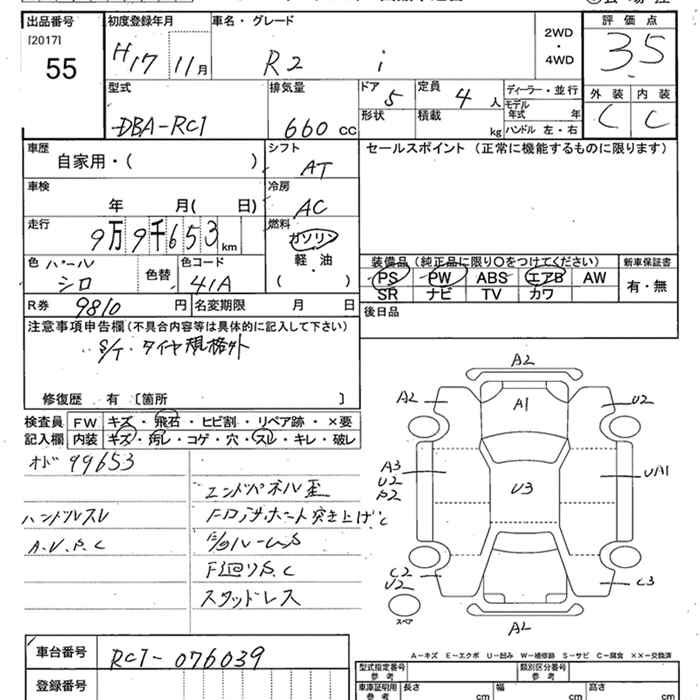 出品番号
[2017]
55
初度登録年月
H17 11月
車名・グレード
R2 i
2WD
・
4WD
評価点
3.5
外装 内装
C C
型式
DBA-RC1
排気量
660 cc
ドア 5
定員 4 人
形状
積載 kg
ディーラー・並行
モデル年式 年
ハンドル 左・右
車歴
自家用・( )
シフト
AT
セールスポイント (正常に機能するものに限ります)
車検
年 月( 日)
冷房
AC
走行
9万9千653km
燃料
ガソリン
軽・油
( )
色 パール
シロ
色替
色コード
41A
装備品 (純正品に限り○をつけてください)
PS PW ABS エアB AW
SR ナビ TV カワ
新車保証書
有・無
R券 9810 円
名変期限 月 日
後日品
注意事項申告欄(不具合内容等は具体的に記入して下さい)
S/T. タイヤ規格外
修復歴 有 [箇所 ]
検査員
記入欄
FW キズ・飛石・ヒビ割・リペア跡・×要
内装 キズ・汚レ・コゲ・穴・スレ・キレ・破レ
オド 99653
エンドパネル歪
ハンドルスレ
突き上げC
A.U.P.C
F廻りS.C
スタッドレス
A2
A2
A1
U2
A3
U2
P2
U3
UA1
C2
U2
C3
A2
スペア
A-キズ E-エクボ U-凹み W-補修跡 S-サビ C-腐食 ××-交換済
車台番号
RC1-076039
登録番号
型式指定番号
参考
類別区分番号
参考
車庫証明用
参考
長さ cm
幅 cm
高さ cm